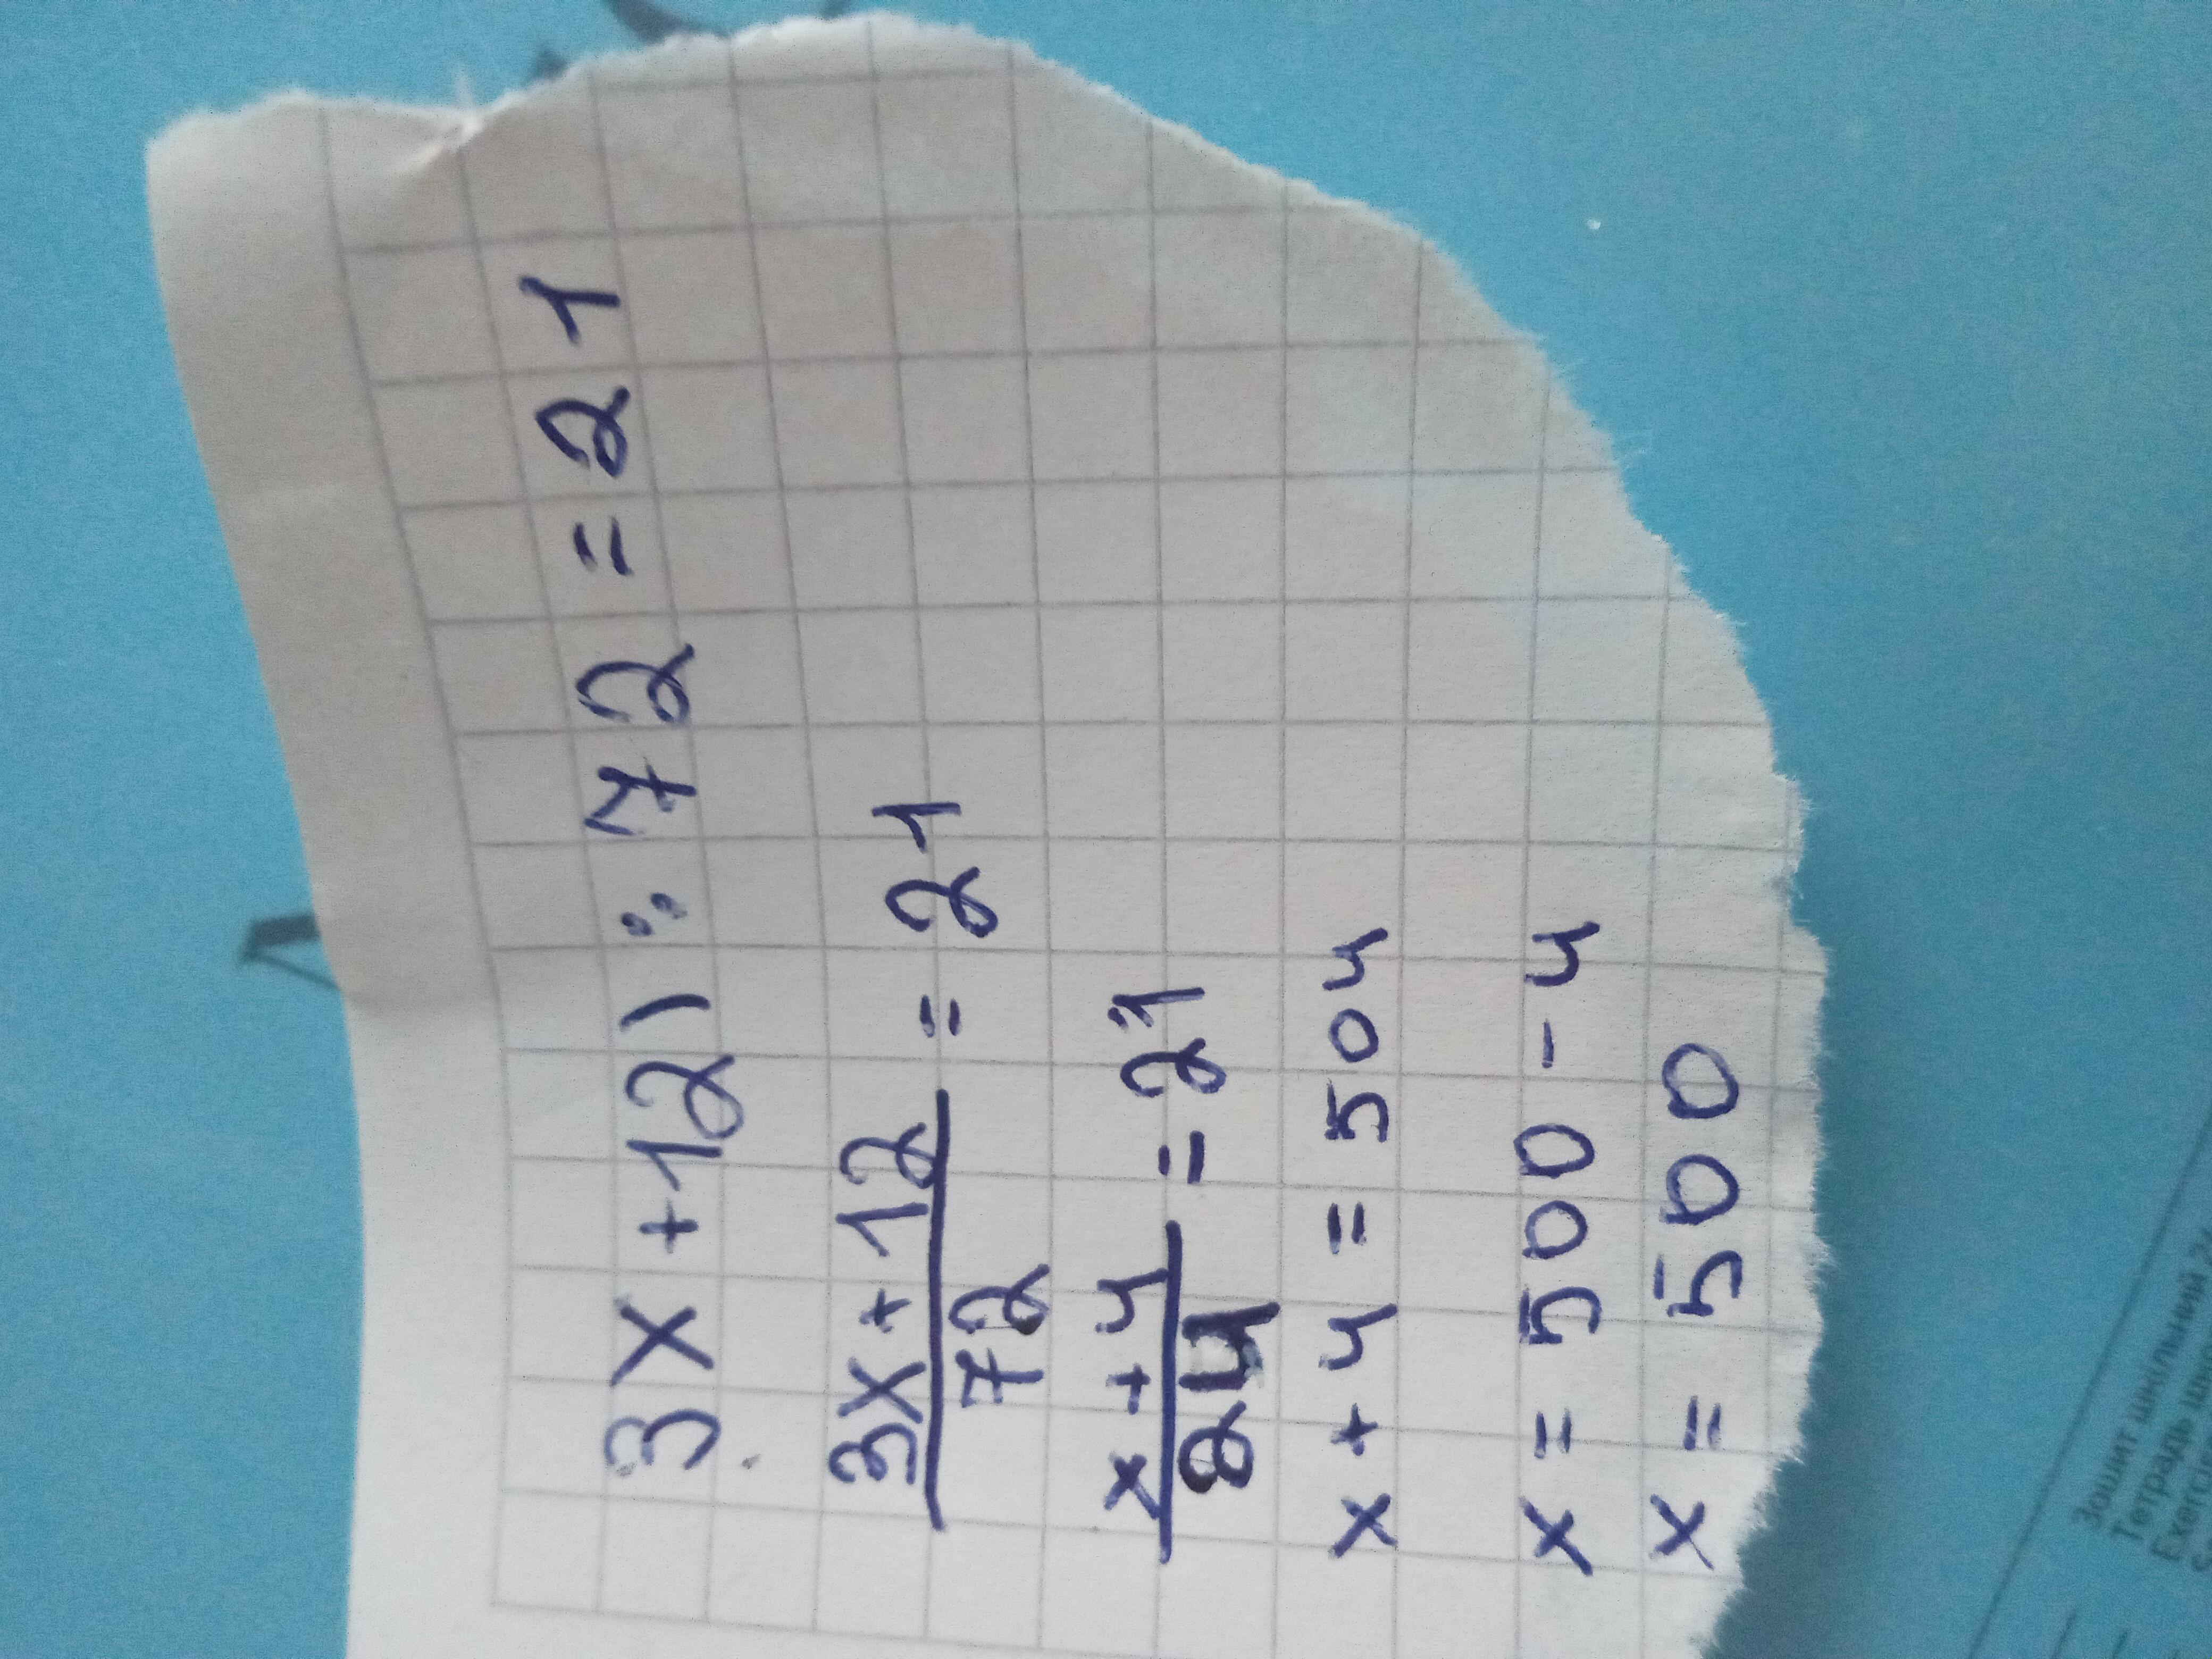 3x + 12) : 72 = 21
3x + 12 = 21
72
x + 4 = 21
24
x + 4 = 504
x = 500 - 4
x = 500
Зошит шкільний
Тетрадь